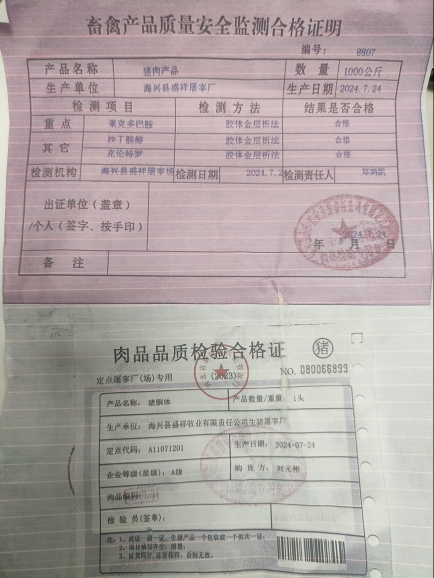 畜禽产品质量安全监测合格证明
编号： 8807
产品名称 猪肉产品 数量 1000公斤
生产单位 海兴县盛祥屠宰厂 生产日期 2024.7.24
检测项目 检测方法 结果是否合格
重点 莱克多巴胺 胶体金层析法 合格
其它 沙丁胺醇 胶体金层析法 合格
克伦特罗 胶体金层析法 合格
检测机构 海兴县盛祥屠宰场 检测日期 2024.7.2 检测责任人
出证单位（盖章）
/个人（签字、按手印）
2024.7.24
年 月 日
备注
肉品品质检验合格证 猪
定点屠宰厂(场)专用 (2023) NO.
产品名称： 猪胴体 产品数量/重量： 1头
生产单位： 海兴县盛祥牧业有限责任公司生猪屠宰厂
定点代码： A11071201 生产日期： 2024-07-24
企业等级(星级)： A级 购货方： 刘元彬
肉品编号：
检验员(签章)：
注：1、此证一猪一证，生猪产品一个包装或一个批次一证；